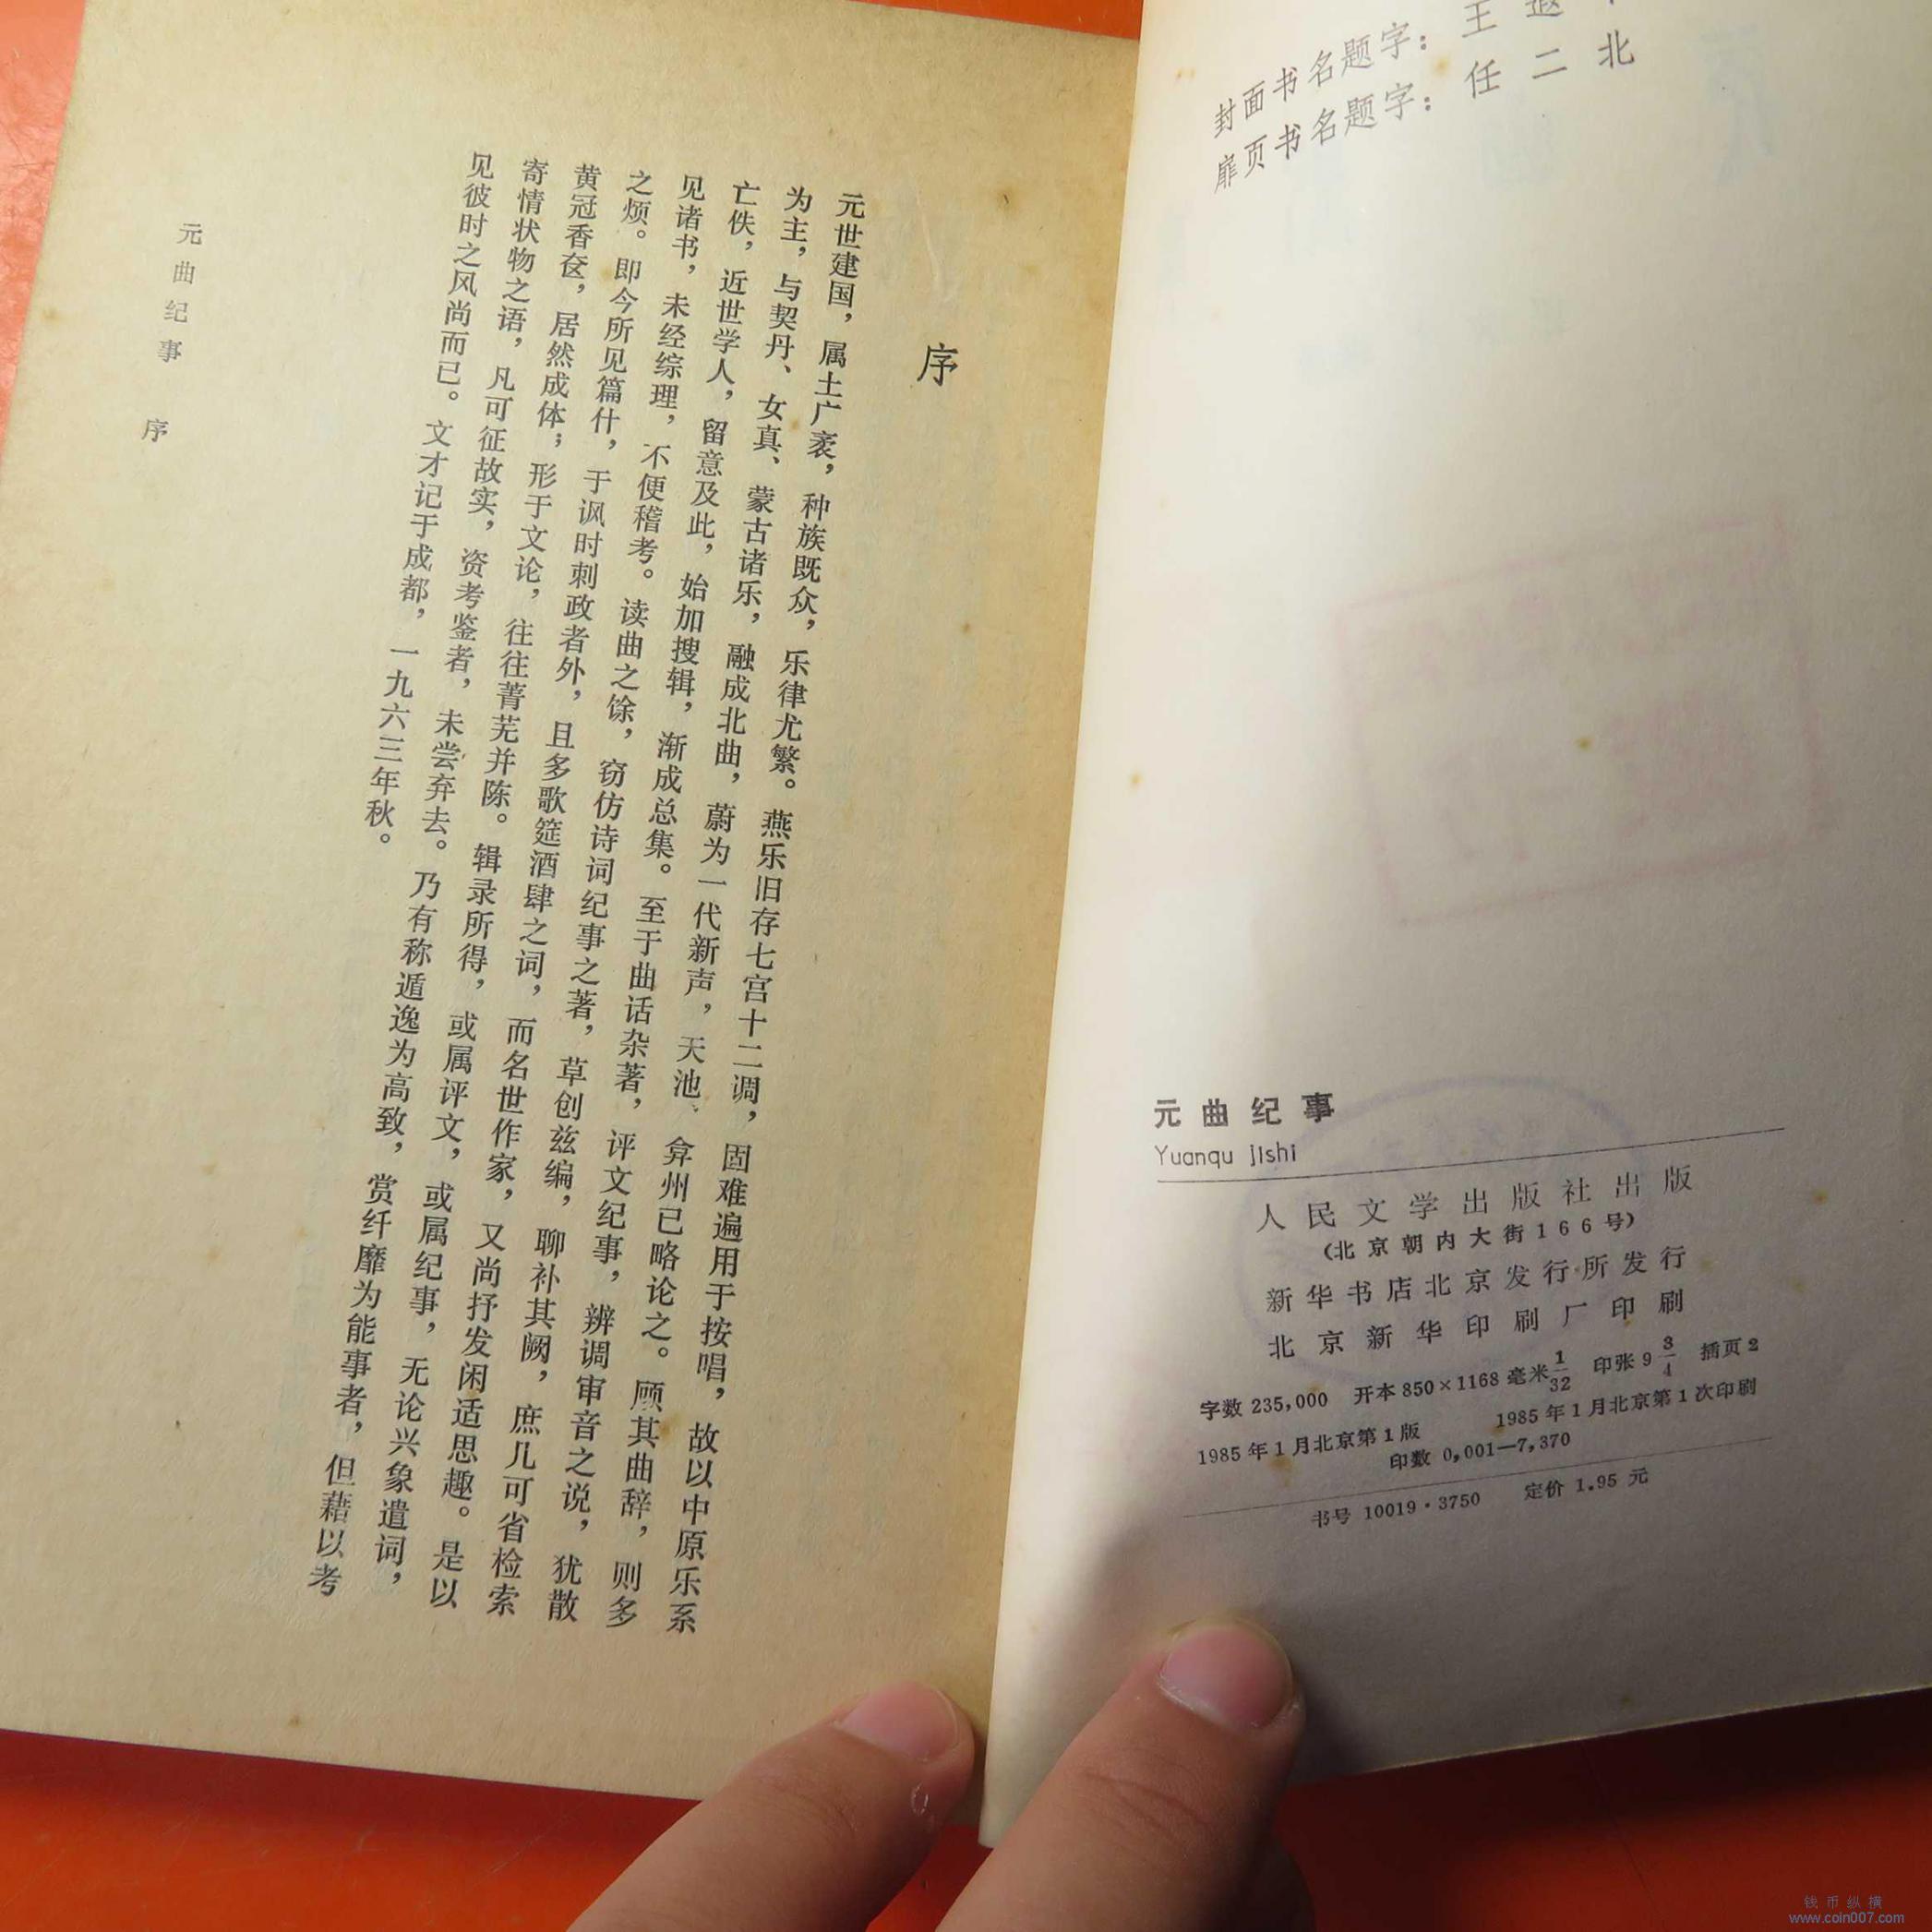 封面书名题字：王遐
扉页书名题字：任二北
元曲纪事
Yuanqu jishi
人民文学出版社出版
（北京朝内大街166号）
新华书店北京发行所发行
北京新华印刷厂印刷
字数 235,000 开本 850×1168 毫米 1/32 印张 9 3/4 插页 2
1985年1月北京第1版 1985年1月北京第1次印刷
印数 0,001—7,370
书号 10019·3750 定价 1.95 元
序
元世建国，属土广袤，种族既众，乐律尤繁。燕乐旧存七宫十二调，固难遍用于按唱，故以中原乐系
为主，与契丹、女真、蒙古诸乐，融成北曲，蔚为一代新声，天池、弇州已略论之。顾其曲辞，则多
亡佚，近世学人，留意及此，始加搜辑，渐成总集。至于曲话杂著，评文纪事，辨调审音之说，犹散
见诸书，未经综理，不便稽考。读曲之馀，窃仿诗词纪事之著，草创兹编，聊补其阙，庶几可省检索
之烦。即今所见篇什，于讽时刺政者外，且多歌筵酒肆之词，而名世作家，又尚抒发闲适思趣。是以
黄冠香奁，居然成体；形于文论，往往菁芜并陈。辑录所得，或属评文，或属纪事，无论兴象遣词，
寄情状物之语，凡可征故实，资考鉴者，未尝弃去。乃有称遁逸为高致，赏纤靡为能事者，但藉以考
见彼时之风尚而已。文才记于成都，一九六三年秋。
元曲纪事 序
钱币纵横
www.coin007.com